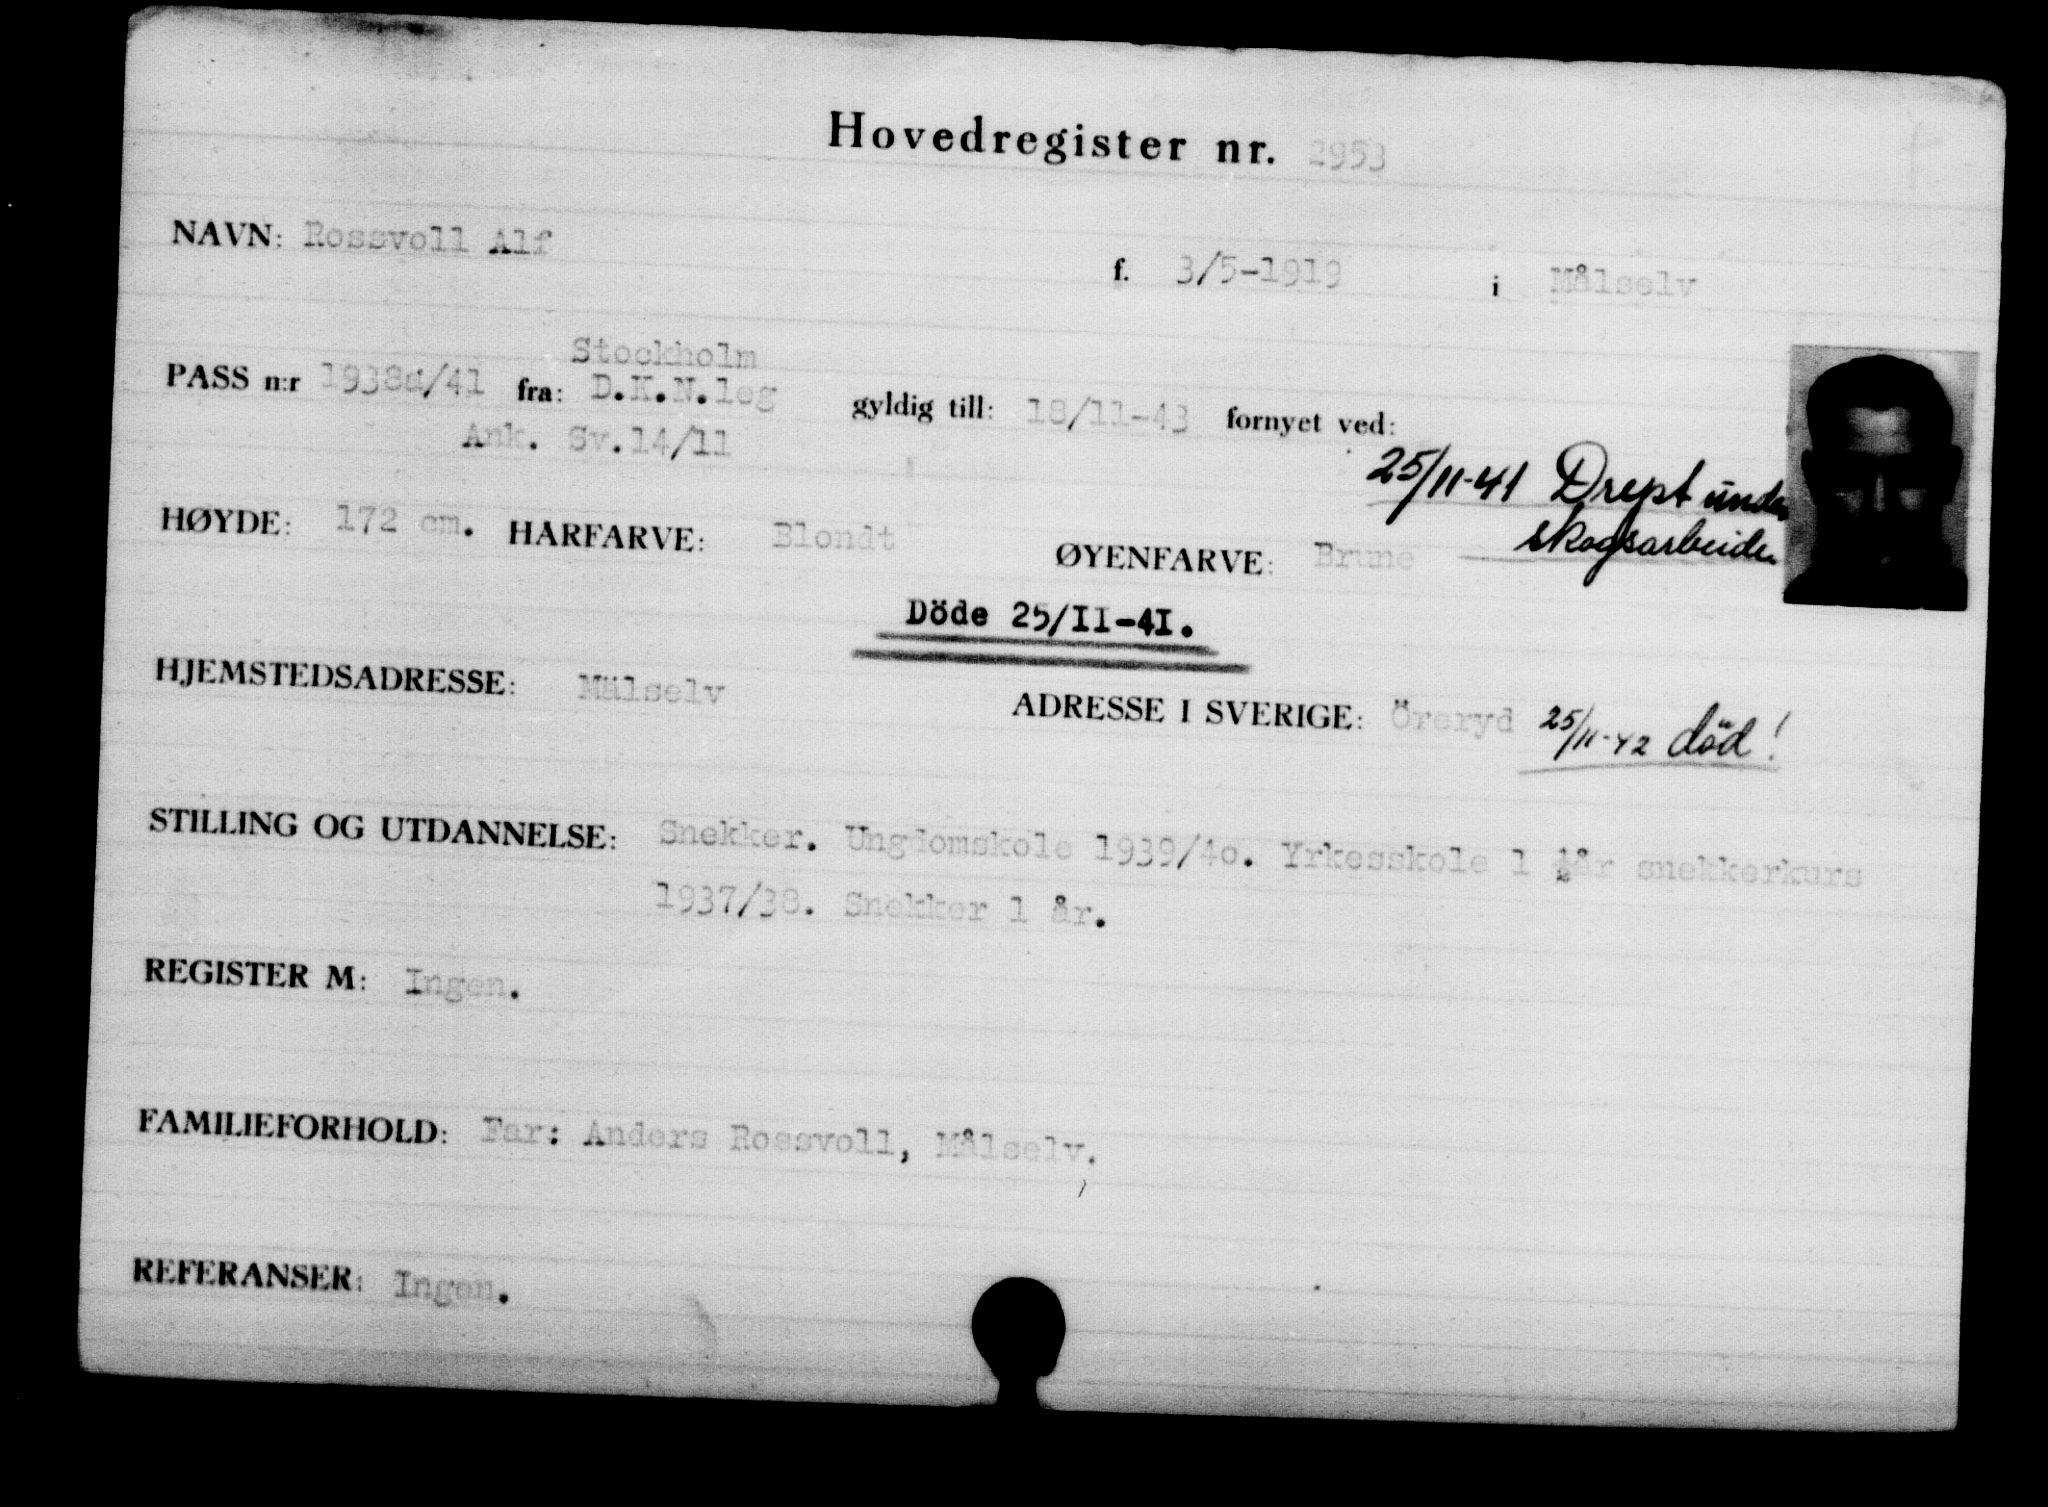 Hovedregister nr. 2953
NAVN: Rossvoll Alf f. 3/5-1919 i Målselv
Stockholm
PASS n:r 1938a/41 fra: D.K.N.leg gyldig till: 18/11-43 fornyet ved:
Ank. Sv.14/11
25/11-41 Drept under
skogsarbeide
HØYDE: 172 cm. HARFARVE: Blondt ØYENFARVE: Brune
Döde 25/II-4I.
HJEMSTEDSADRESSE: Målselv ADRESSE I SVERIGE: Öreryd 25/11-42 död!
STILLING OG UTDANNELSE: Snekker. Ungdomskole 1939/4o. Yrkesskole 1 ½år snekkerkurs
1937/38. Snekker 1 år.
REGISTER M: Ingen.
FAMILIEFORHOLD: Far: Anders Rossvoll, Målselv.
REFERANSER: Ingen.